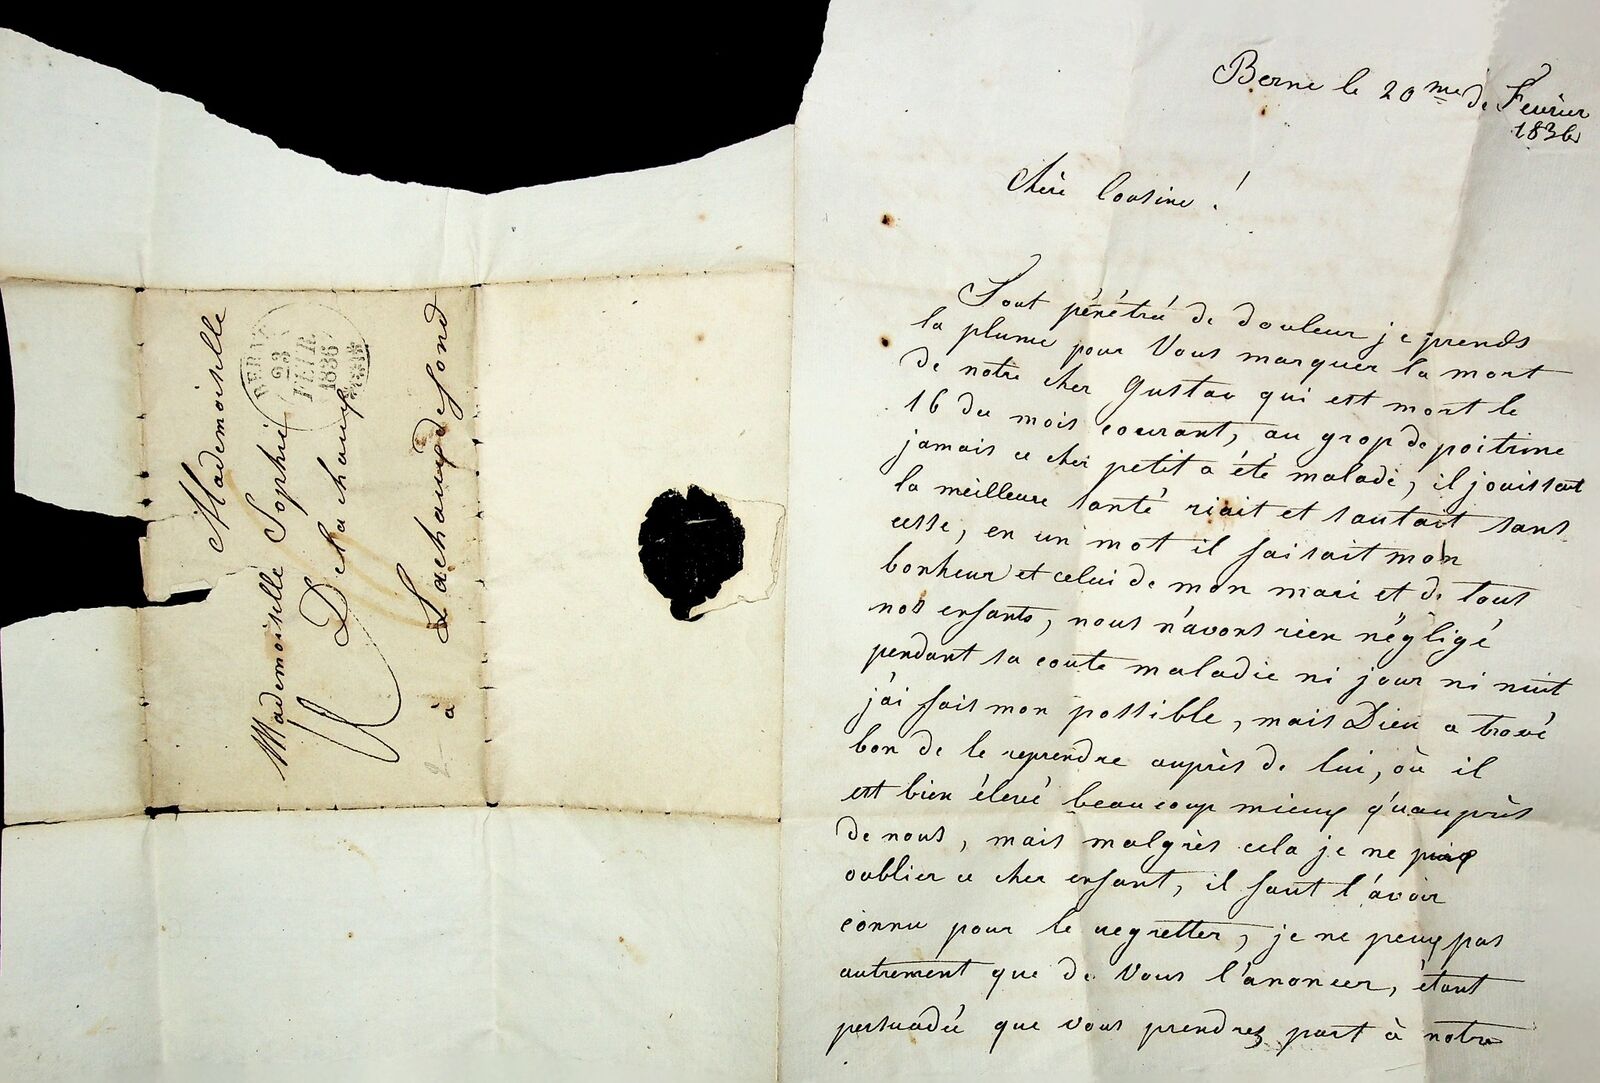 Mademoiselle
Mademoiselle Sophie
Delachaux
à Lachauxdefond
BERNE
23
FEVR.
1836
Berne le 20me de Fevrier
1836
Chère Cousine !
Tout pénétré de douleur je prends
la plume pour Vous marquer la mort
de notre cher Gustav qui est mort le
16 du mois courant, au grop de poitrine
jamais ce cher petit a été malade, il jouissait
la meilleure santé riait et sautait sans
cesse, en un mot il faisait mon
bonheur et celui de mon mari et de tout
nos enfants, nous n'avons rien négligé
pendant sa coute maladie ni jour ni nuit
j'ai fait mon possible, mais Dieu a trové
bon de le reprendre auprès de lui, où il
est bien élevé beaucoup mieux qu'auprès
de nous, mais malgrès cela je ne puis
oublier ce cher enfant, il faut l'avoir
connu pour le regretter, je ne peux pas
autrement que de Vous l'anoncer, étant
persuadée que vous prendrez part à notre